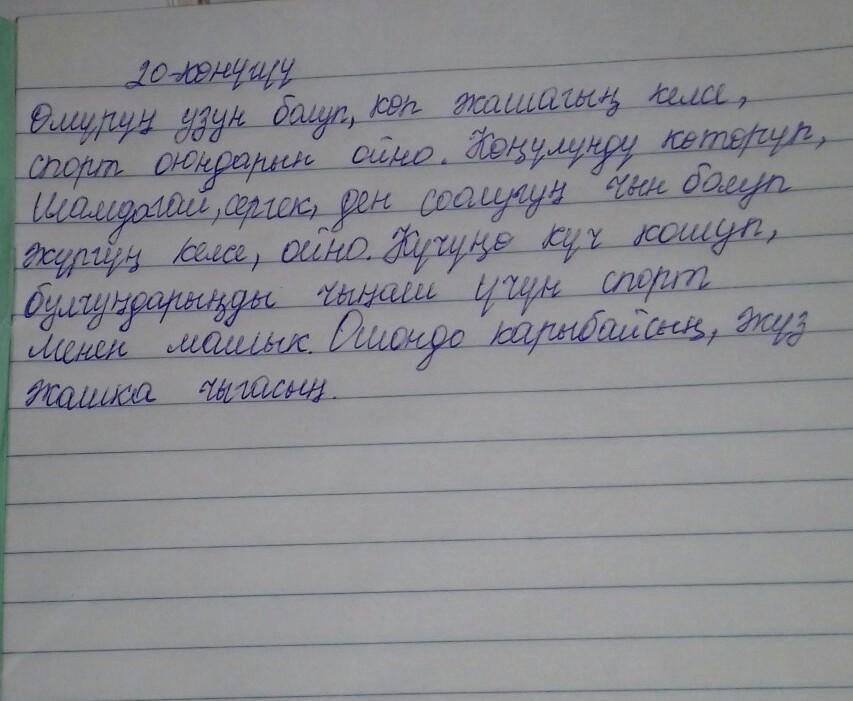 20-көнүгүү
Өмүрүң узун болуп, көп жашагың келсе,
спорт оюндарын ойно. Көңүлүңдү көтөрүп,
шамдагай, сергек, ден соолугуң чын болуп
жүргүң келсе, ойно. Күчүңө күч кошуп,
булчуңдарыңды чыңаш үчүн спорт
менен машык. Ошондо карыбайсың, жүз
жашка чыгасың.